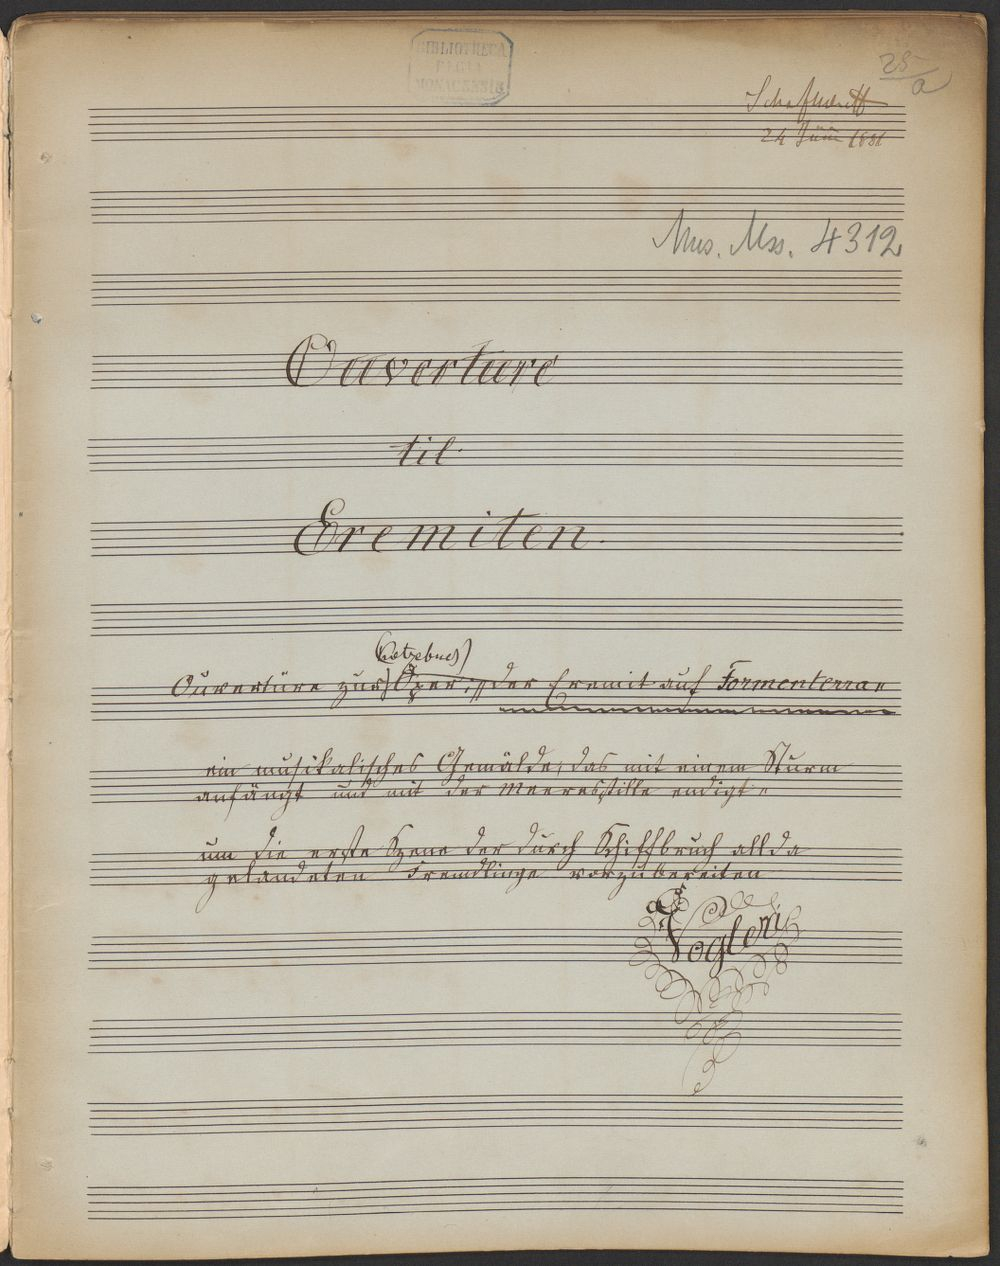 BIBLIOTHECA
REGIA
MONACENSIS
25
a
Schafhäutl
24 Juni 1881
Mus. Mss. 4312
Ouverture
til
Eremiten.
(Kotzebues)
Ouvertüre zur Oper: „der Eremit auf Formentera„
ein musikalisches Gemälde, das mit einem Sturm
anfängt und mit der Meeresstille endigt,
um die erste Szene der durch Schiffbruch allda
gelandeten Fremdlinge vorzubereiten
Vogleri